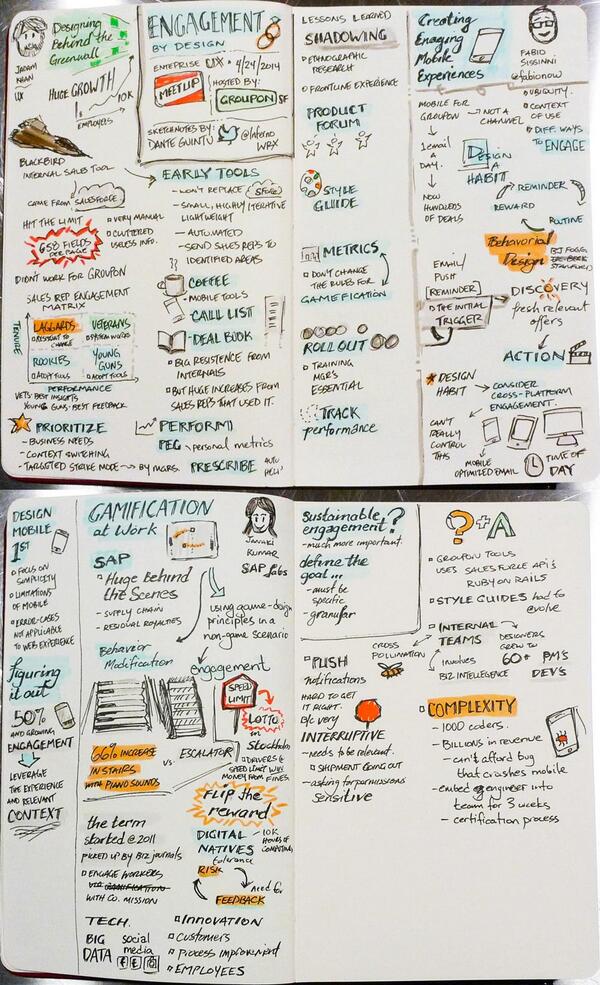 Designing
Behind the
Greenwall
JADAM
KHAN
UX
HUGE GROWTH!
10K
EMPLOYEES
BLACKBIRD
INTERNAL SALES TOOL
CAME FROM SALESFORCE.
HIT THE LIMIT
658 FIELDS
PER PAGE
VERY MANUAL
CLUTTERED
USELESS INFO.
DIDN'T WORK FOR GROUPON
SALES REP ENGAGEMENT
MATRIX
TENURE
LAGGARDS
RESISTANT TO
CHANGE
VETERANS
SYSTEM WORKS
ROOKIES
ADOPT TOOLS
YOUNG
GUNS
ADOPT TOOLS
PERFORMANCE
VETS: BEST INSIGHTS
YOUNG GUNS: BEST FEEDBACK
PRIORITIZE
- BUSINESS NEEDS
- CONTEXT SWITCHING
- TARGETED STRIKE MODE → BY MGRS.
ENGAGEMENT
BY DESIGN
ENTERPRISE UX • 4/24/2014
MEETUP
HOSTED BY:
GROUPON SF
SKETCHNOTES BY:
DANTE GUINTU
@Inferno
WPX
EARLY TOOLS
- WON'T REPLACE SFORCE
- SMALL, HIGHLY ITERATIVE
LIGHTWEIGHT
- AUTOMATED
- SEND SALES REPS TO
IDENTIFIED AREAS
COFFEE
- MOBILE TOOLS
- CALL LIST
- DEAL BOOK
BIG RESISTANCE FROM
INTERNALS
BUT HUGE INCREASES FROM
SALES REPS THAT USED IT.
PERFORM
PEG - personal metrics
PRESCRIBE
LESSONS LEARNED
SHADOWING
ETHNOGRAPHIC
RESEARCH
FRONTLINE EXPERIENCE
PRODUCT
FORUM
STYLE
GUIDE
METRICS
DON'T CHANGE
THE RULES FOR
GAMEFICATION
ROLL OUT
TRAINING
MGR'S
ESSENTIAL
TRACK
performance
Creating
Engaging
Mobile
Experiences
FABIO
SISSINNI
@fabionow
MOBILE FOR
GROUPON
→ NOT A
CHANNEL
UBIQUITY.
CONTEXT
OF USE
DIFF. WAYS
TO ENGAGE
1 EMAIL
A
DAY.
NOW
HUNDREDS
OF DEALS
DESIGN
A
HABIT
REMINDER
REWARD
ROUTINE
Behavorial
Design
BJ FOGG
STANFORD
EMAIL/
PUSH
REMINDER
THE INITIAL
TRIGGER
DISCOVERY
fresh relevant
offers
ACTION
DESIGN
HABIT
CONSIDER
CROSS-PLATFORM
ENGAGEMENT.
CAN'T
REALLY
CONTROL
THIS
MOBILE
OPTIMIZED EMAIL
TIME OF
DAY
DESIGN
MOBILE
1ST
FOCUS ON
SIMPLICITY
LIMITATIONS
OF MOBILE
ERROR-CASES
NOT APPLICABLE
TO WEB EXPERIENCE
figuring
it out
50%
AND GROWING
ENGAGEMENT
LEVERAGE
THE EXPERIENCE
AND RELEVANT
CONTEXT
GAMIFICATION
at Work
JANAKI
KUMAR
SAP Labs
SAP
Huge Behind
the Scenes
- SUPPLY CHAIN
- RESIDUAL ROYALTIES
Behavior
Modification
using game-design
principles in a
non-game scenario
engagement
66% INCREASE
IN STAIRS
WITH PIANO SOUNDS
VS.
ESCALATOR
SPEED
LIMIT
LOTTO
in
Stockholm
DRIVERS @
SPEED LIMIT WIN
MONEY FROM FINES.
FLIP the
reward
the term
started @ 2011
PICKED UP BY BIZ JOURNALS
ENGAGE WORKERS
VIA GAMIFICATION
WITH CO. MISSION
DIGITAL
NATIVES
- 10K
HOURS OF
COMPUTING
tolerance
RISK
need for
FEEDBACK
TECH.
BIG
DATA
social
media
INNOVATION
Customers
Process improvement
EMPLOYEES
Sustainable
engagement?
- much more important.
define the
goal...
- must be
specific
- granular
PUSH
notifications
HARD TO GET
IT RIGHT.
b/c very
INTERRUPTIVE
- needs to be relevant.
SHIPMENT GOING OUT
- asking for permissions
SENSITIVE
CROSS
POLLINATION
? + A
GROUPON TOOLS
USES SALESFORCE API's
RUBY ON RAILS
STYLE GUIDES had to
evolve
INTERNAL
TEAMS
DESIGNERS
GREW TO
60+ PM's
DEV's
Involves
BIZ INTELLIGENCE
COMPLEXITY
- 1000 coders.
- Billions in revenue
- can't afford bug
that crashes mobile
- embed engineer into
team for 3 weeks
- certification process